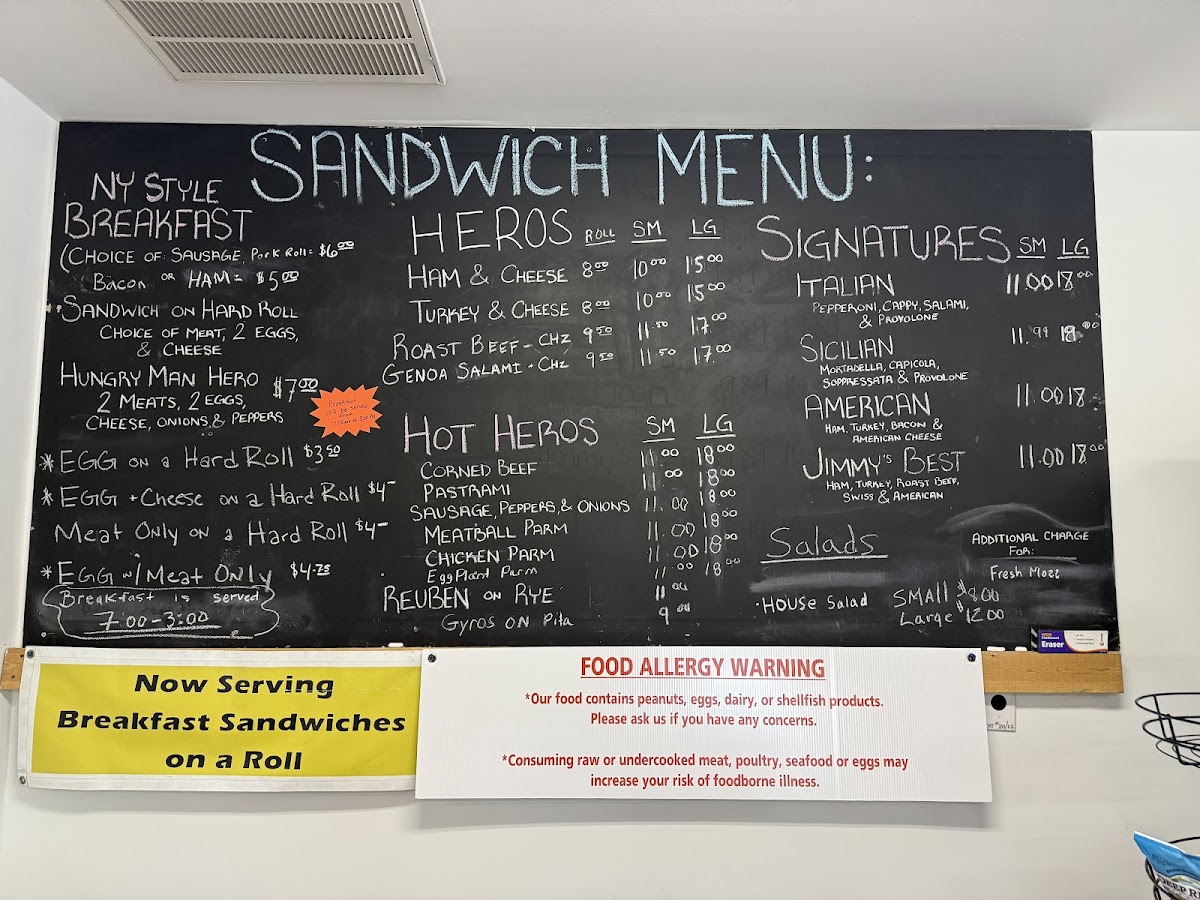 SANDWICH MENU:
NY STYLE
BREAKFAST
(CHOICE OF: SAUSAGE, Pork Roll= $6.00
Bacon or HAM= $5.00
SANDWICH ON HARD ROLL
CHOICE OF MEAT, 2 EGGS,
& CHEESE
HUNGRY MAN HERO $7.00
2 MEATS, 2 EGGS,
CHEESE, ONIONS & PEPPERS
Breakfast
will be served
from
* EGG ON a Hard Roll $3.50
* EGG + Cheese on a Hard Roll $4-
Meat Only on a Hard Roll $4-
* EGG w/ Meat Only $4.75
Breakfast is served
7:00-3:00
HEROS ROLL SM LG
HAM & CHEESE 8.00 10.00 15.00
TURKEY & CHEESE 8.00 10.00 15.00
ROAST BEEF - CHZ 9.50 11.50 17.00
GENOA SALAMI - CHZ 9.50 11.50 17.00
HOT HEROS SM LG
CORNED BEEF 11.00 18.00
PASTRAMI 11.00 18.00
SAUSAGE, PEPPERS, & ONIONS 11.00 18.00
MEATBALL PARM 11.00 18.00
CHICKEN PARM 11.00 18.00
EggPlant Parm 11.00 18.00
REUBEN ON RYE 11.00
Gyros on Pita 9.00
SIGNATURES SM LG
ITALIAN 11.00 18.00
PEPPERONI, CAPPY, SALAMI,
& PROVOLONE
SICILIAN 11.99 18.00
MORTADELLA, CAPICOLA,
SOPPRESSATA & PROVOLONE
AMERICAN 11.00 18-
HAM, TURKEY, BACON &
AMERICAN CHEESE
JIMMY'S BEST 11.00 18.00
HAM, TURKEY, ROAST BEEF,
SWISS & AMERICAN
Salads
• House Salad SMALL $8.00
Large $12.00
ADDITIONAL CHARGE
FOR:
Fresh Mozz
Eraser
Now Serving
Breakfast Sandwiches
on a Roll
FOOD ALLERGY WARNING
*Our food contains peanuts, eggs, dairy, or shellfish products.
Please ask us if you have any concerns.
*Consuming raw or undercooked meat, poultry, seafood or eggs may
increase your risk of foodborne illness.